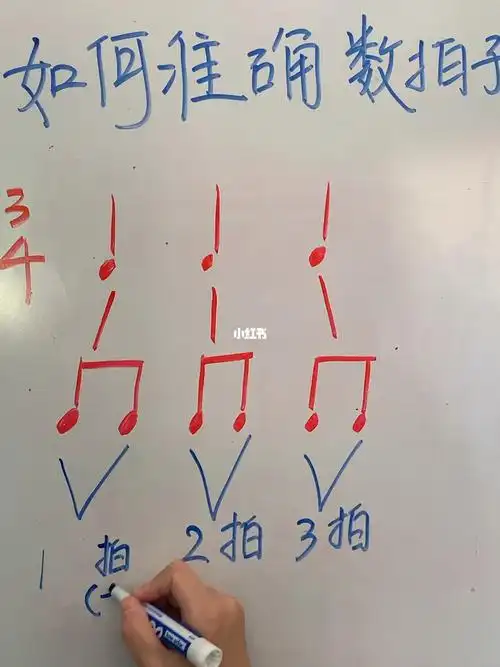 如何准确数拍子
3
4
小红书
1 拍 2拍 3拍
(